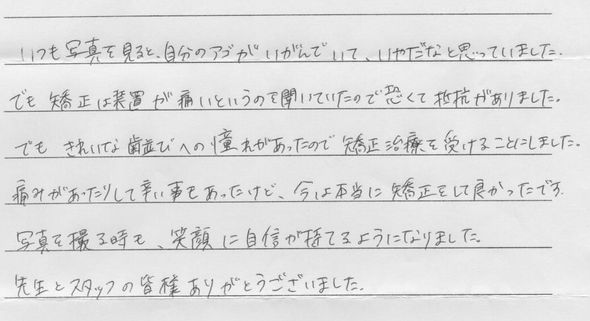 いつも写真を見ると、自分のアゴがいがんでいて、いやだなと思っていました。
でも矯正は装置が痛いというのを聞いていたので恐くて抵抗がありました。
でもきれいな歯並びへの憧れがあったので矯正治療を受けることにしました。
痛みがあったりして辛い事もあったけど、今は本当に矯正をして良かったです。
写真を撮る時も、笑顔に自信が持てるようになりました。
先生とスタッフの皆様ありがとうございました。